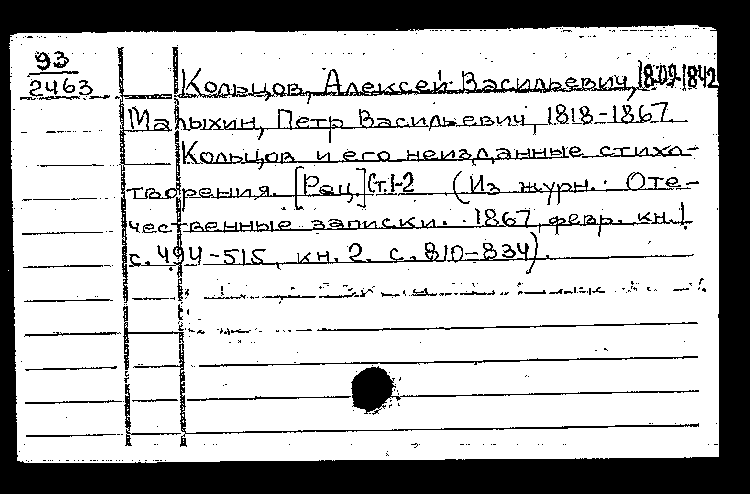 93
2463
Кольцов, Алексей Васильевич, 1809-1842
Малыхин, Петр Васильевич, 1818-1867.
Кольцов и его неизданные стихо-
творения. [Рец.] Ст. 1-2 (Из журн.: Оте-
чественные записки. 1867, февр. кн. 1
с. 494-515, кн. 2. с. 810-834).